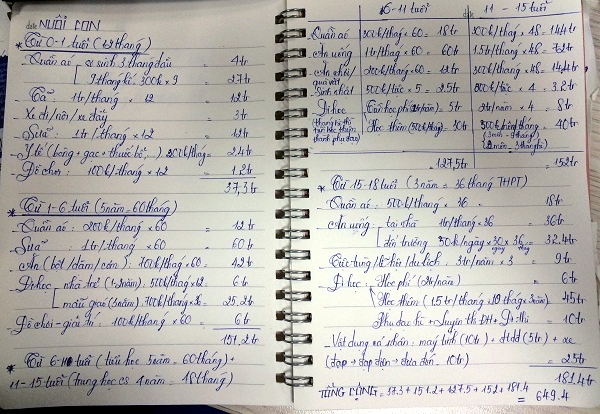 NUÔI CON
* Từ 0-1 tuổi (12 tháng)
- Quần áo sơ sinh 3 tháng đầu = 4tr
9 tháng kế: 300k x 9 = 2,7tr
- Tã 1tr/tháng x 12 = 12tr
- Xe đi/nôi/xe đẩy = 3tr
- Sữa: 1tr/tháng x 12 = 12tr
- Y tế (bông + gạc + thuốc bổ,...) 200k/tháng = 2.4tr
- Đồ chơi: 100k/tháng x 12 = 1.2tr
37,3tr
* Từ 1-6 tuổi (5 năm = 60 tháng)
- Quần áo: 200k/tháng x 60 = 12tr
- Sữa: 1tr/tháng x 60 = 60tr
- Ăn (bột/dặm/cơm): 700k/tháng x 60 = 42tr
- Đi học: nhà trẻ (1-2 năm) 500k/tháng x 12 = 6tr
mẫu giáo (3 năm) 700k/tháng x 36 = 25.2tr
- Đồ chơi - giải trí: 100k/tháng x 60 = 6tr
151,2tr
* Từ 6-11 tuổi (tiểu học 5 năm = 60 tháng) +
11-15 tuổi (trung học cs 4 năm = 48 tháng)
6-11 tuổi 11-15 tuổi
- Quần áo 300k/tháng x 60 = 18tr 300k/tháng x 48 = 14.4tr
- Ăn uống 1tr/tháng x 60 = 60tr 1.5tr/tháng x 48 = 72tr
- Ăn chơi/quà vặt 200k/tháng x 60 = 12tr 300k/tháng x 48 = 14.4tr
- Sinh nhật 500k/tức x 5 = 2.5tr 800k/tức x 4 = 3.2tr
- Đi học Tiền học phí 5tr 2tr/năm x 4 = 8tr
Học thêm (500k/tháng) = 30tr = 40tr
127,5tr = 152tr
* Từ 15-18 tuổi (3 năm = 36 tháng THPT)
- Quần áo: 500k/tháng x 36 = 18tr
- Ăn uống: tại nhà 1tr/tháng x 36 = 36tr
tại trường 30k/ngày x 30 ngày x 36 = 32.4tr
lễ hội/du lịch: 3tr/năm x 3 = 9tr
- Đi học: Học phí (2tr/năm) = 6tr
Học thêm (1.5tr/tháng x 10 tháng x 3 năm) 45tr
+ luyện thi ĐH + thi = 10tr
- Vật dụng cá nhân: máy tính (10tr) + dtdd (5tr) + xe
(đạp → đạp điện → đưa đón 10tr) = 25tr
181.4tr
TỔNG CỘNG = 37.3 + 151.2 + 127.5 + 152 + 181.4
= 649.4